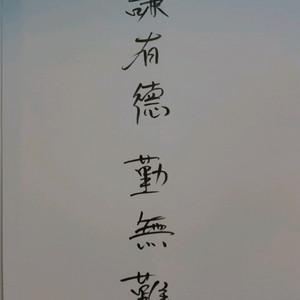 謙有德勤無難